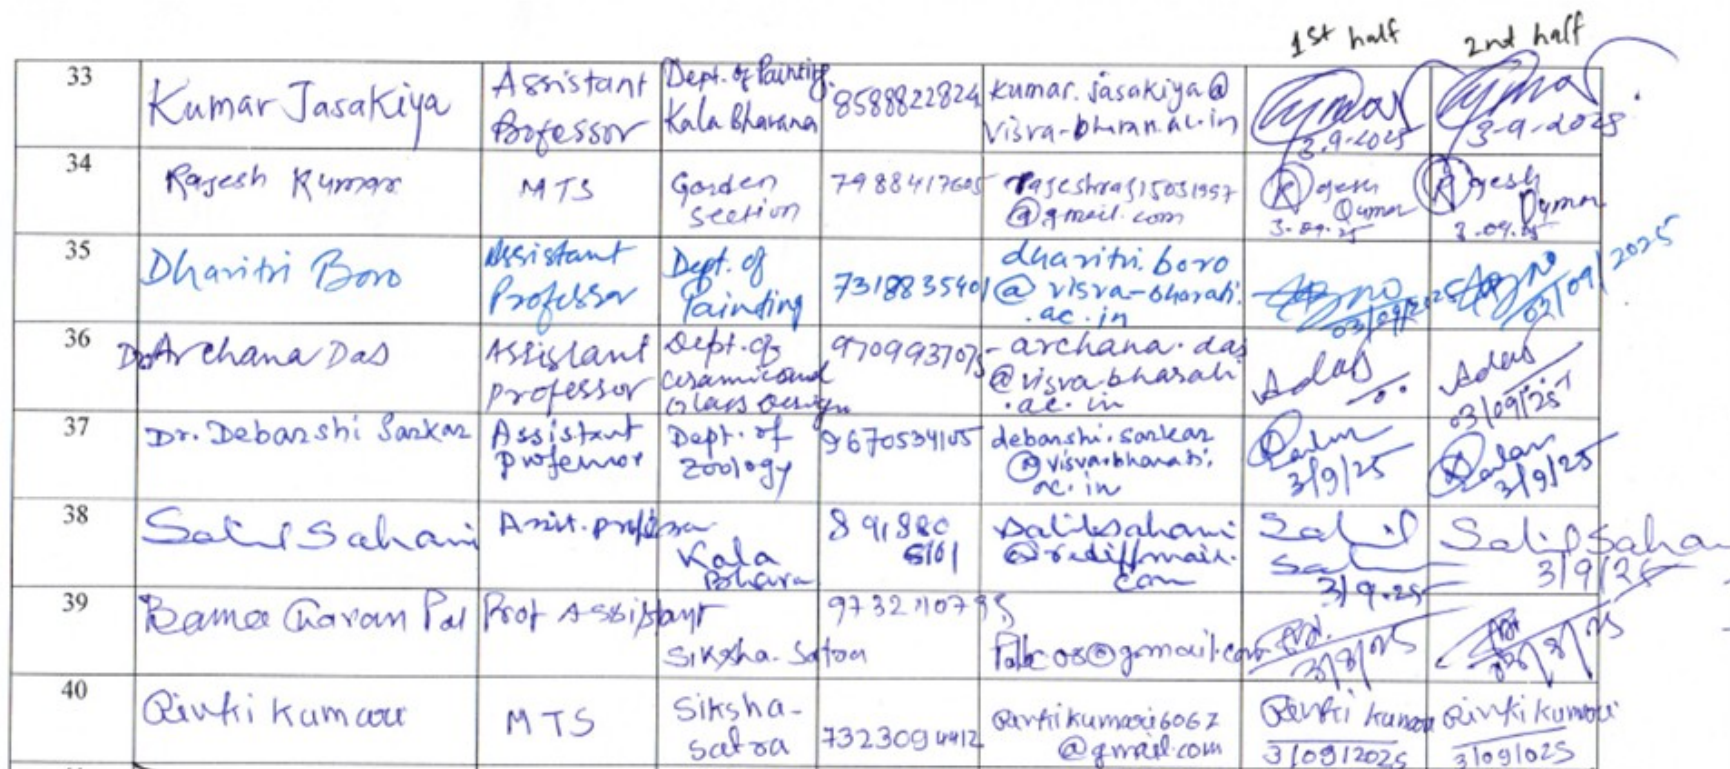 1st half 2nd half
33 Kumar Jasakiya Assistant Professor Dept. of Painting. Kala Bhavana 8588822824 kumar.jasakiya@ visva-bharati.ac.in 3.9.2025 3-9-2025
34 Rajesh Kumar MTS Garden Section 7988417605 @gmail.com Rajesh Kumar 3.09.25 Rajesh Kumar 3.09.25
35 Dharitri Boro Assistant Professor Dept. of Painting 7318835401 dharitri.boro @visva-bharati. ac.in 03/09/2025 03/09/2025
36 Dr. Archana Das Assistant Professor Dept. of Ceramic and Glass Design 9709937075 archana.das @visva-bharati .ac.in Adas Adas 03/09/25
37 Dr. Debarshi Sarkar Assistant Professor Dept. of Zoology 9670534105 debarshi.sarkar @visva-bharati. ac.in 3/9/25 3/9/25
38 Salil Sahani Assit. professor Kala Bhava 891880 5101 salilsahani @rediffmail. com Salil 3/9.25 Salil Sahan 3/9/25
39 Bamacharan Pal Prof Assistant Siksha-Satra @gmail.com
40 Rinki Kumari MTS Siksha- Satra 7323094412 Rinkikumari6062 @gmail.com Rinki Kumari 3/09/2025 Rinki Kumari 3/09/025